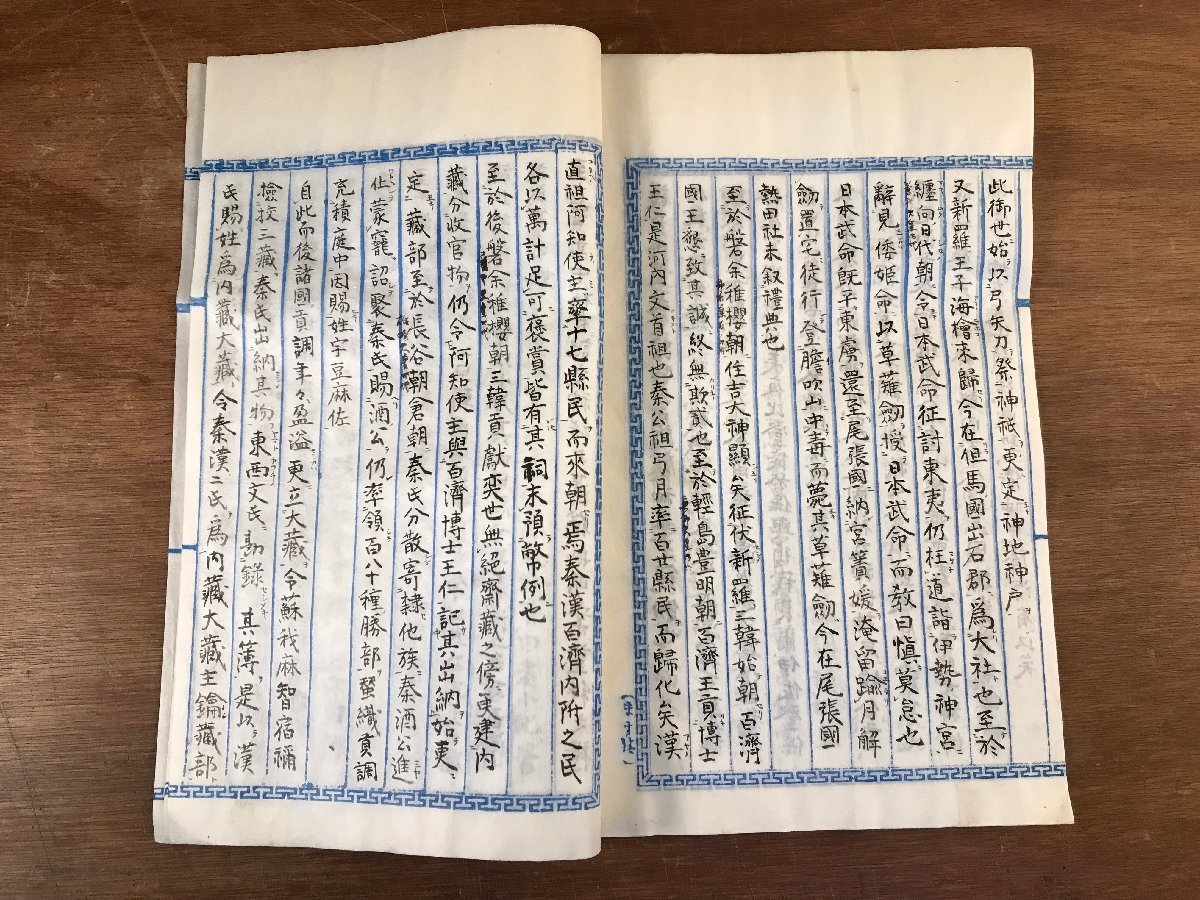 此御世始以弓矢刀祭神祇更定神地神戸
又新羅王子海檜来歸今在但馬國出石郡爲大社也至於
纏向日代朝令日本武命征討東夷仍枉道詣伊勢神宮
辭見倭姫命以草薙劔授日本武命而教曰慎莫怠也
日本武命既平東虜還至尾張國納宮簀媛淹留踰月解
劔置宅徒行登膽吹山中毒而薨其草薙劔今在尾張國
熱田社未叙禮典也
至於磐余稚櫻朝住吉大神顯矣征伏新羅三韓始朝百濟
國王懇致其誠終無欺貳也至於輕島豊明朝百濟王貢博士
王仁是河内文首祖也秦公祖弓月率百廿縣民而歸化矣漢
直祖阿知使主率十七縣民而來朝焉秦漢百濟内附之民
各以萬計足可褒賞皆有其祠未預幣例也
至於後磐余稚櫻朝三韓貢獻奕世無絶齋藏之傍更建内
藏分收官物仍令阿知使主與百濟博士王仁記其出納始更
定藏部至於長谷朝倉朝秦氏分散寄隷他族秦酒公進
仕蒙寵詔聚秦氏賜酒公仍率領百八十種勝部蠶織貢調
充積庭中因賜姓宇豆麻佐
自此而後諸國貢調年々盈溢更立大藏令蘇我麻智宿祢
撿挍三藏秦氏出納其物東西文氏勘録其簿是以漢
氏賜姓爲内藏大藏令秦漢二氏爲内藏大藏主鑰藏部